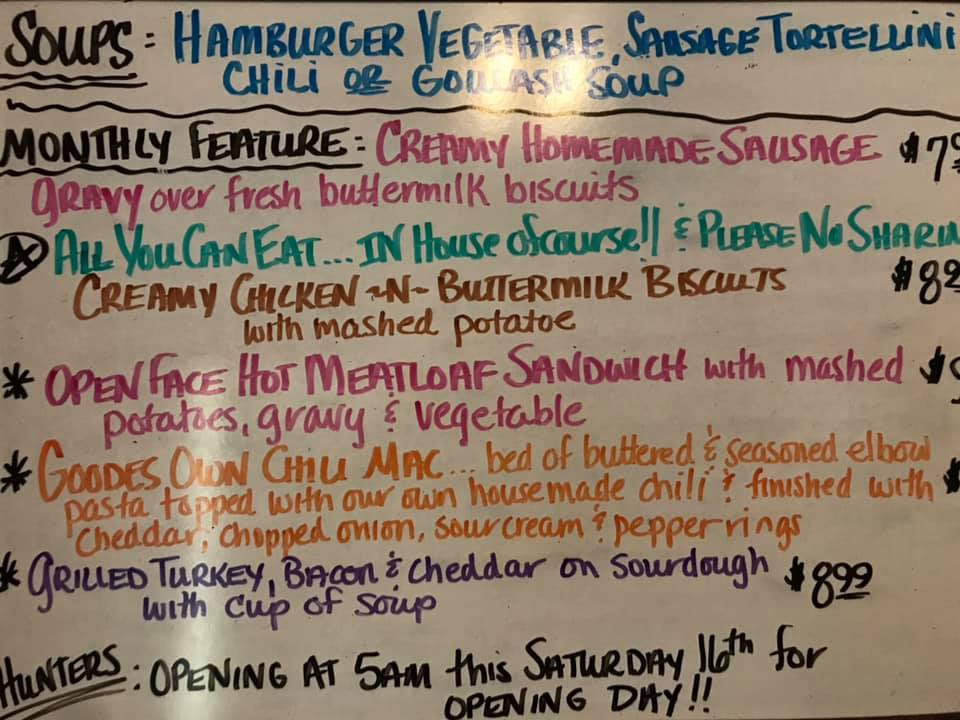 SOUPS: HAMBURGER VEGETABLE, SAUSAGE TORTELLINI
CHILI OR GOULASH SOUP
MONTHLY FEATURE: CREAMY HOMEMADE SAUSAGE $7
GRAVY over fresh buttermilk biscuits
ALL YOU CAN EAT... IN House ofcourse!! & PLEASE NO SHARIN
CREAMY CHICKEN ~N~ BUTTERMILK BISCUITS $8
with mashed potatoe
* OPEN FACE HOT MEATLOAF SANDWICH with mashed $
potatoes, gravy & vegetable
* GOODES OWN CHILI MAC... bed of buttered & seasoned elbow
pasta topped with our own housemade chili & finished with $
Cheddar, chopped onion, sour cream & pepper rings
* GRILLED TURKEY, BACON & Cheddar on sourdough $8.99
with cup of soup
HUNTERS: OPENING AT 5AM this SATURDAY 16th for
OPENING DAY!!